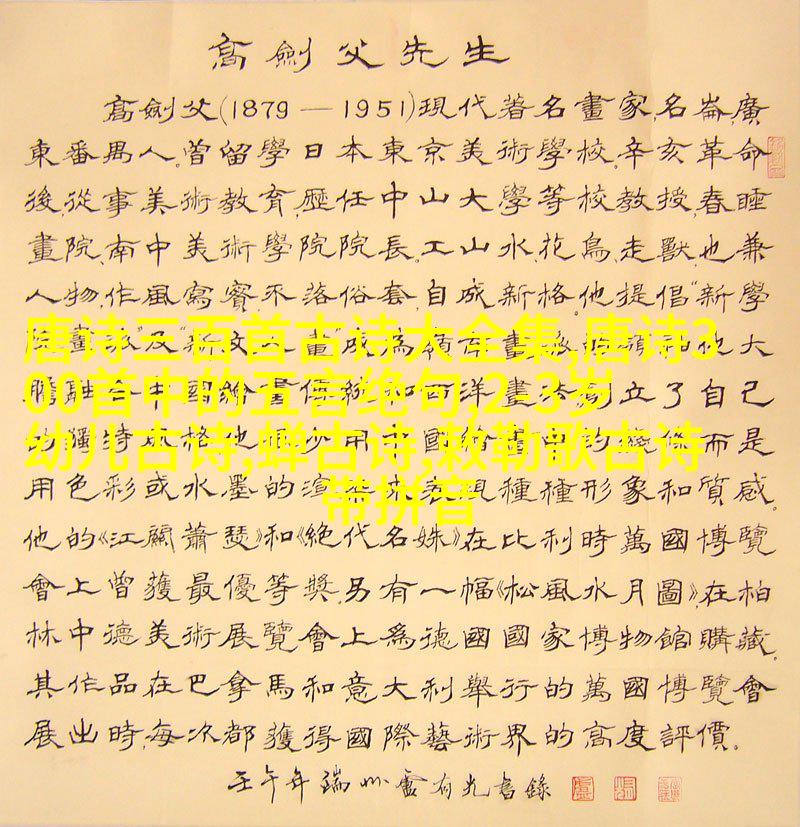 高劍父先生
高劍父(1879—1951)現代著名畫家,名崙,廣
東番禺人.曾留學日本東京美術學校.辛亥革命
後,從事美術教育,歷任中山大學等校教授,春睡
畫院,南中美術學院院長.工山水,花鳥,走獸,也兼
人物,作風寫實,不落俗套,自成新格.他提倡"新學
唐诗三百首古诗大全集,唐诗3
00首中的五言绝句,2-3岁
幼儿古诗,蝉古诗,敕勒歌古诗
带拼音
畫 及"新 畫 成為 他大
膽融合中國繪畫傳統和西洋畫法創立了自己
的獨特風格他 少用中國繪畫的線條而是
用色彩或水墨的渲染來表現種種形象和質感.
他的《江關蕭瑟》和《絕代名姝》在比利時萬國博覽
會上曾獲最優等獎.另有一幅《松風水月圖》,在柏
林中德美術展覽會上為德國國家博物館購藏.
其作品在巴拿馬和意大利舉行的萬國博覽會
展出時,每次都獲得國際藝術界的高度評價.
壬午年端州盧有光書錄